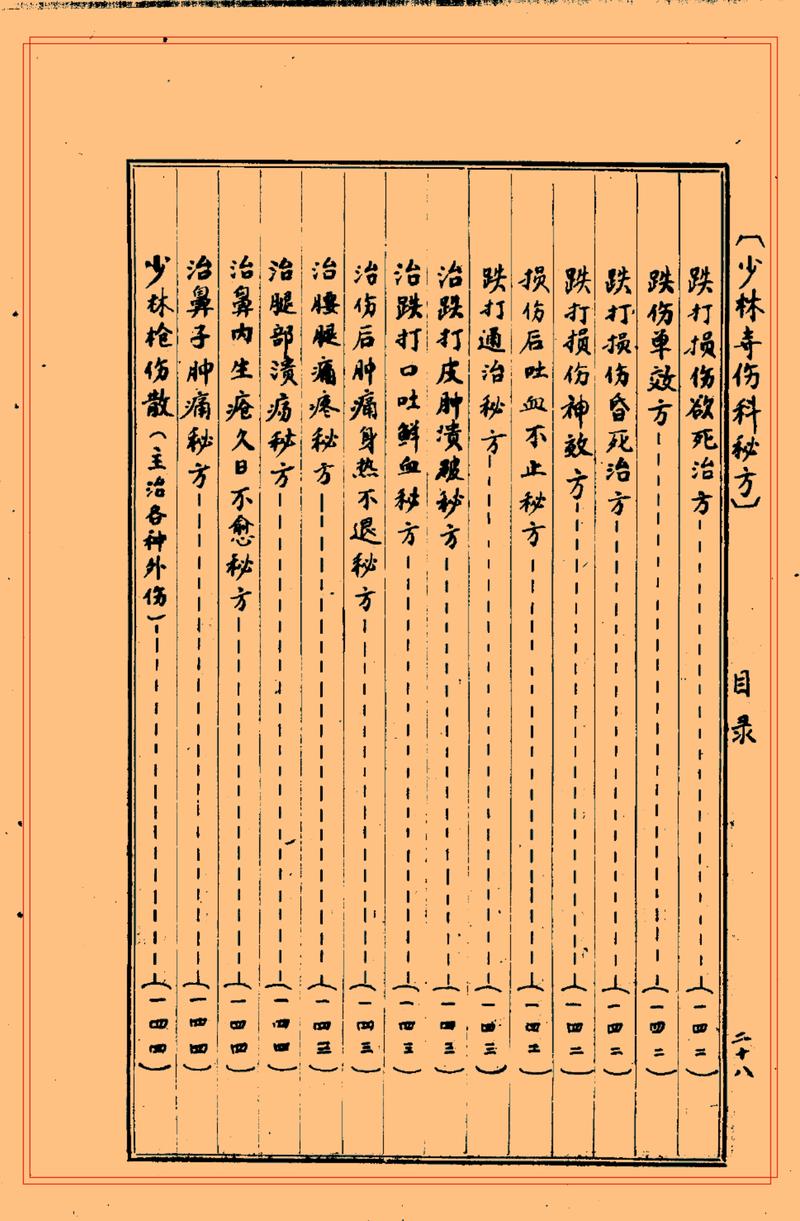 〔少林寺伤科秘方〕 目录 二十八
跌打损伤欲死治方（一四二）
跌伤单效方（一四二）
跌打损伤昏死治方（一四二）
跌打损伤神效方（一四二）
损伤后吐血不止秘方（一四二）
跌打通治秘方（一四三）
治跌打皮肿溃破秘方（一四三）
治跌打口吐鲜血秘方（一四三）
治伤后肿痛身热不退秘方（一四三）
治腰腿痛疼秘方（一四三）
治腿部溃疡秘方（一四四）
治鼻内生疮久日不愈秘方（一四四）
治鼻子肿痛秘方（一四四）
少林枪伤散（主治各种外伤）（一四四）